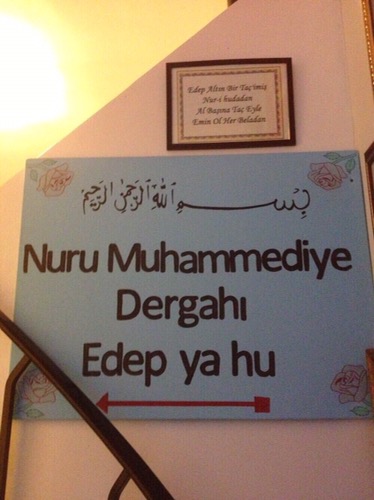 Edep Altın Bir Taç imiş
Nur-i hudadan
Al Başına Taç Eyle
Emin Ol Her Beladan
بِسْمِ اللهِ الرَّحْمٰنِ الرَّحِيمِ
Nuru Muhammediye
Dergahı
Edep ya hu